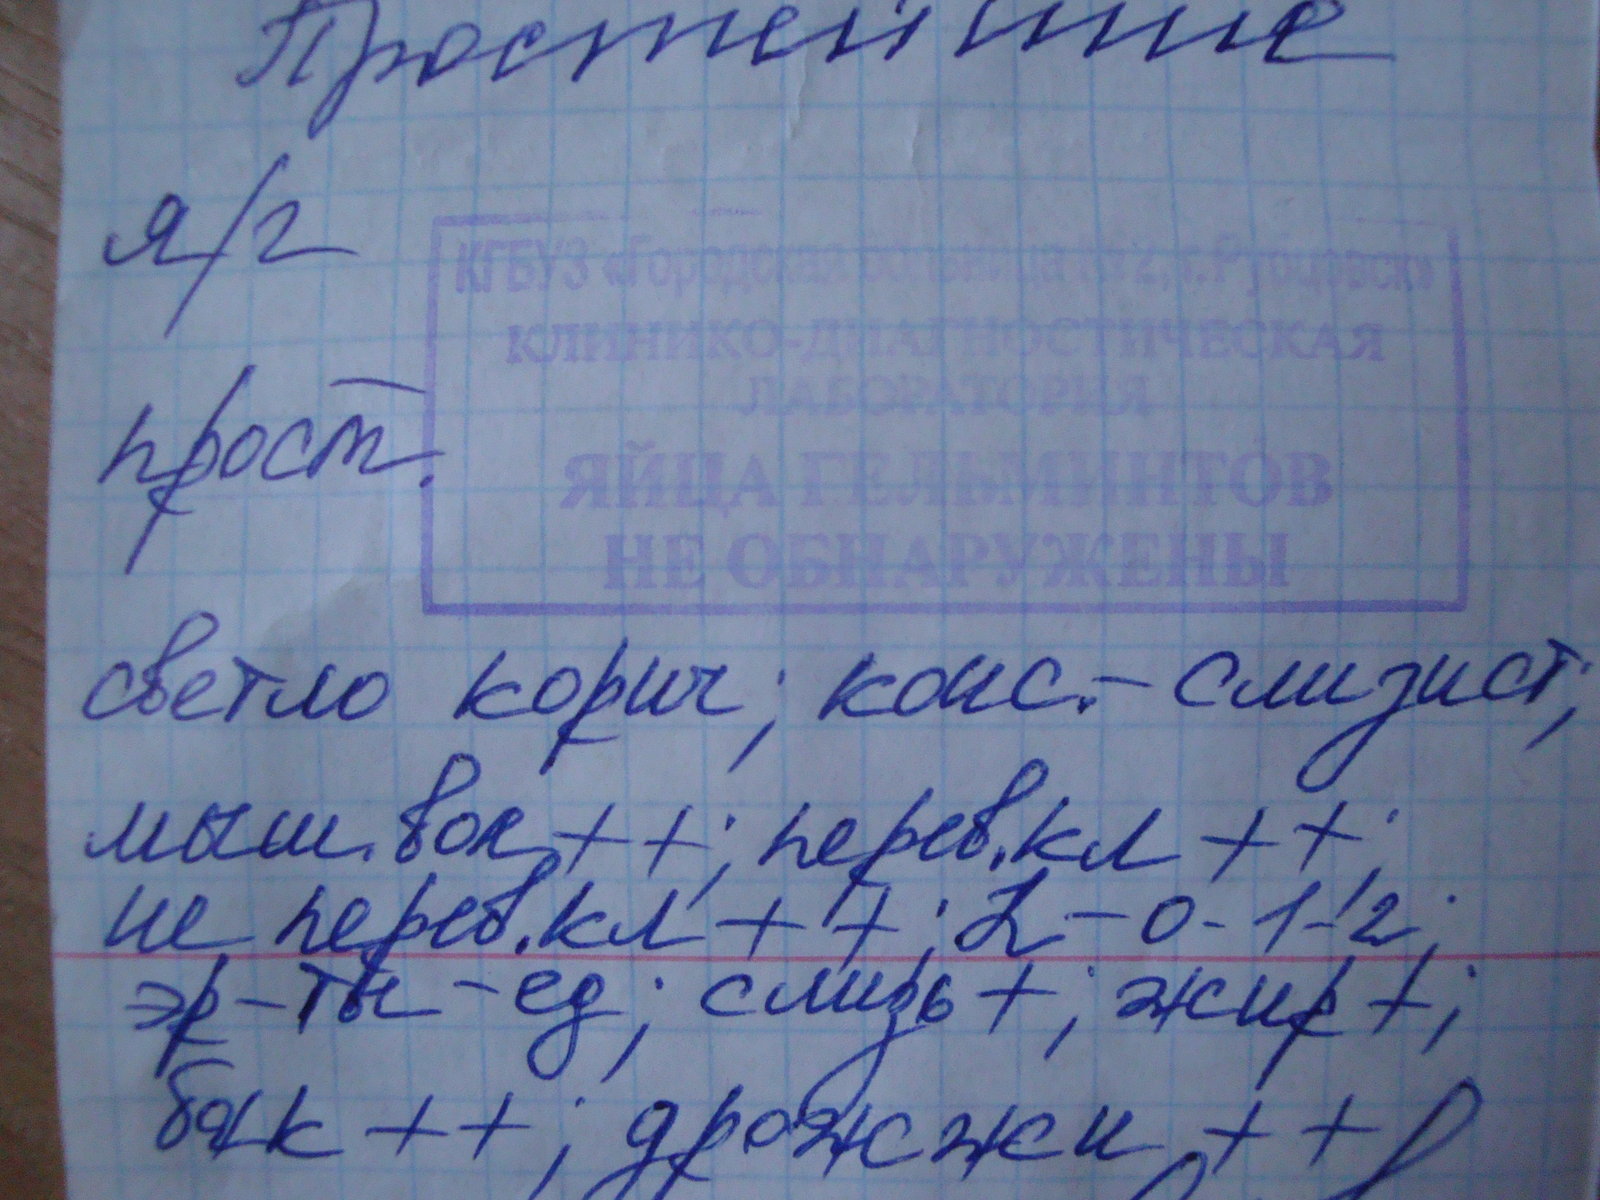 Простейшие
я/г
прост.
КГБУЗ «Городская больница №2, г.Рубцовск»
КЛИНИКО-ДИАГНОСТИЧЕСКАЯ
ЛАБОРАТОРИЯ
ЯЙЦА ГЕЛЬМИНТОВ
НЕ ОБНАРУЖЕНЫ
светло корич; конс.- слизист;
мыш. вол ++; перев.кл ++;
не перев.кл ++; L - 0-1-2;
эр-ты - ед; слизь +; жир +;
бак ++; дрожжи ++